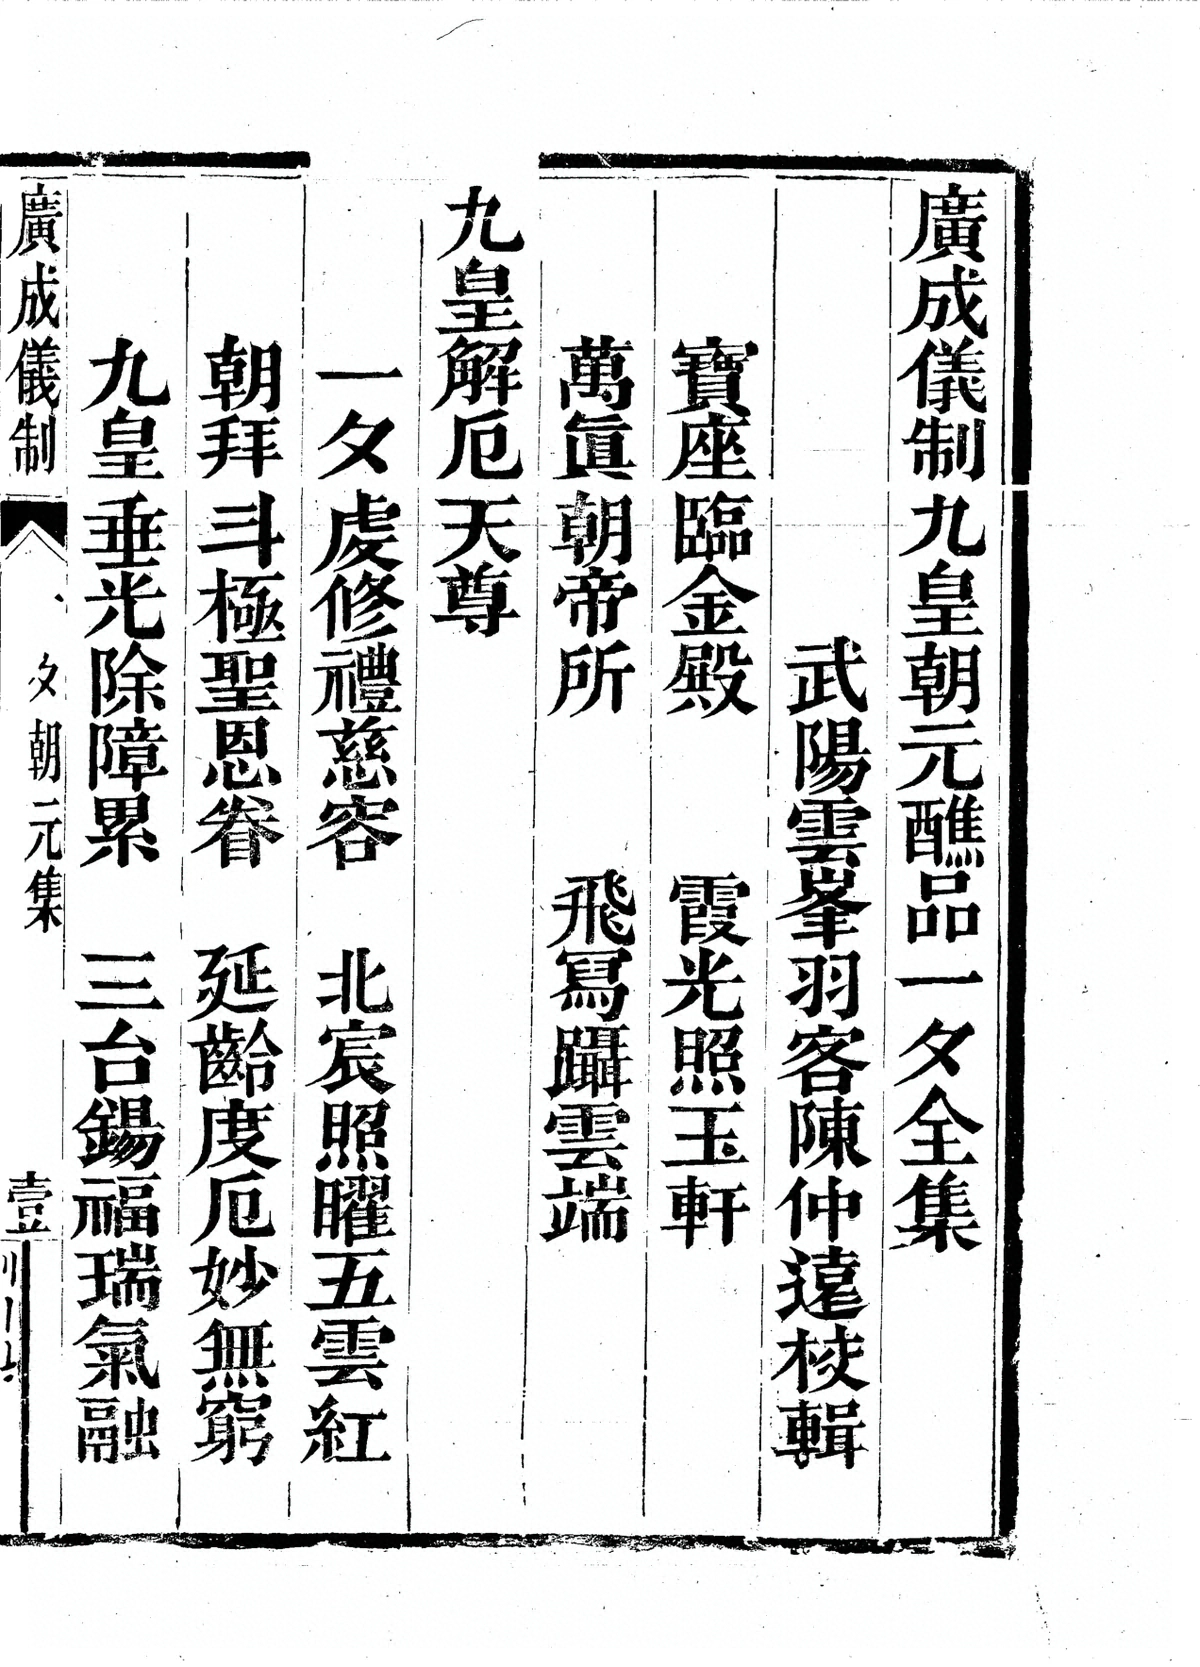 廣成儀制九皇朝元醮品一夕全集
武陽雲峯羽客陳仲遠校輯
寶座臨金殿　霞光照玉軒
萬眞朝帝所　飛舄躡雲端
九皇解厄天尊
一夕虔修禮慈容　北宸照曜五雲紅
朝拜斗極聖恩眷　延齡度厄妙無窮
九皇垂光除障累　三台錫福瑞氣融
廣成儀制　夕朝元集　壹